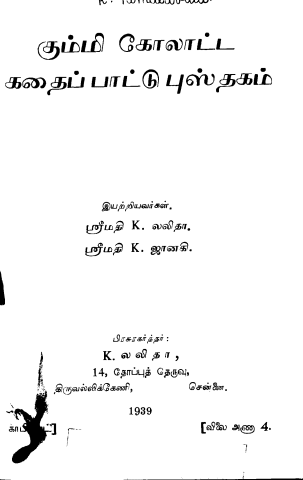 கும்மி கோலாட்ட
கதைப் பாட்டு புஸ்தகம்
இயற்றியவர்கள்.
ஸ்ரீமதி K. லலிதா.
ஸ்ரீமதி K. ஜானகி.
பிரசுரகர்த்தர்:
K. லலிதா,
14, தோப்புத் தெருவு,
திருவல்லிக்கேணி, சென்னை.
1939
[விலை அணா 4.